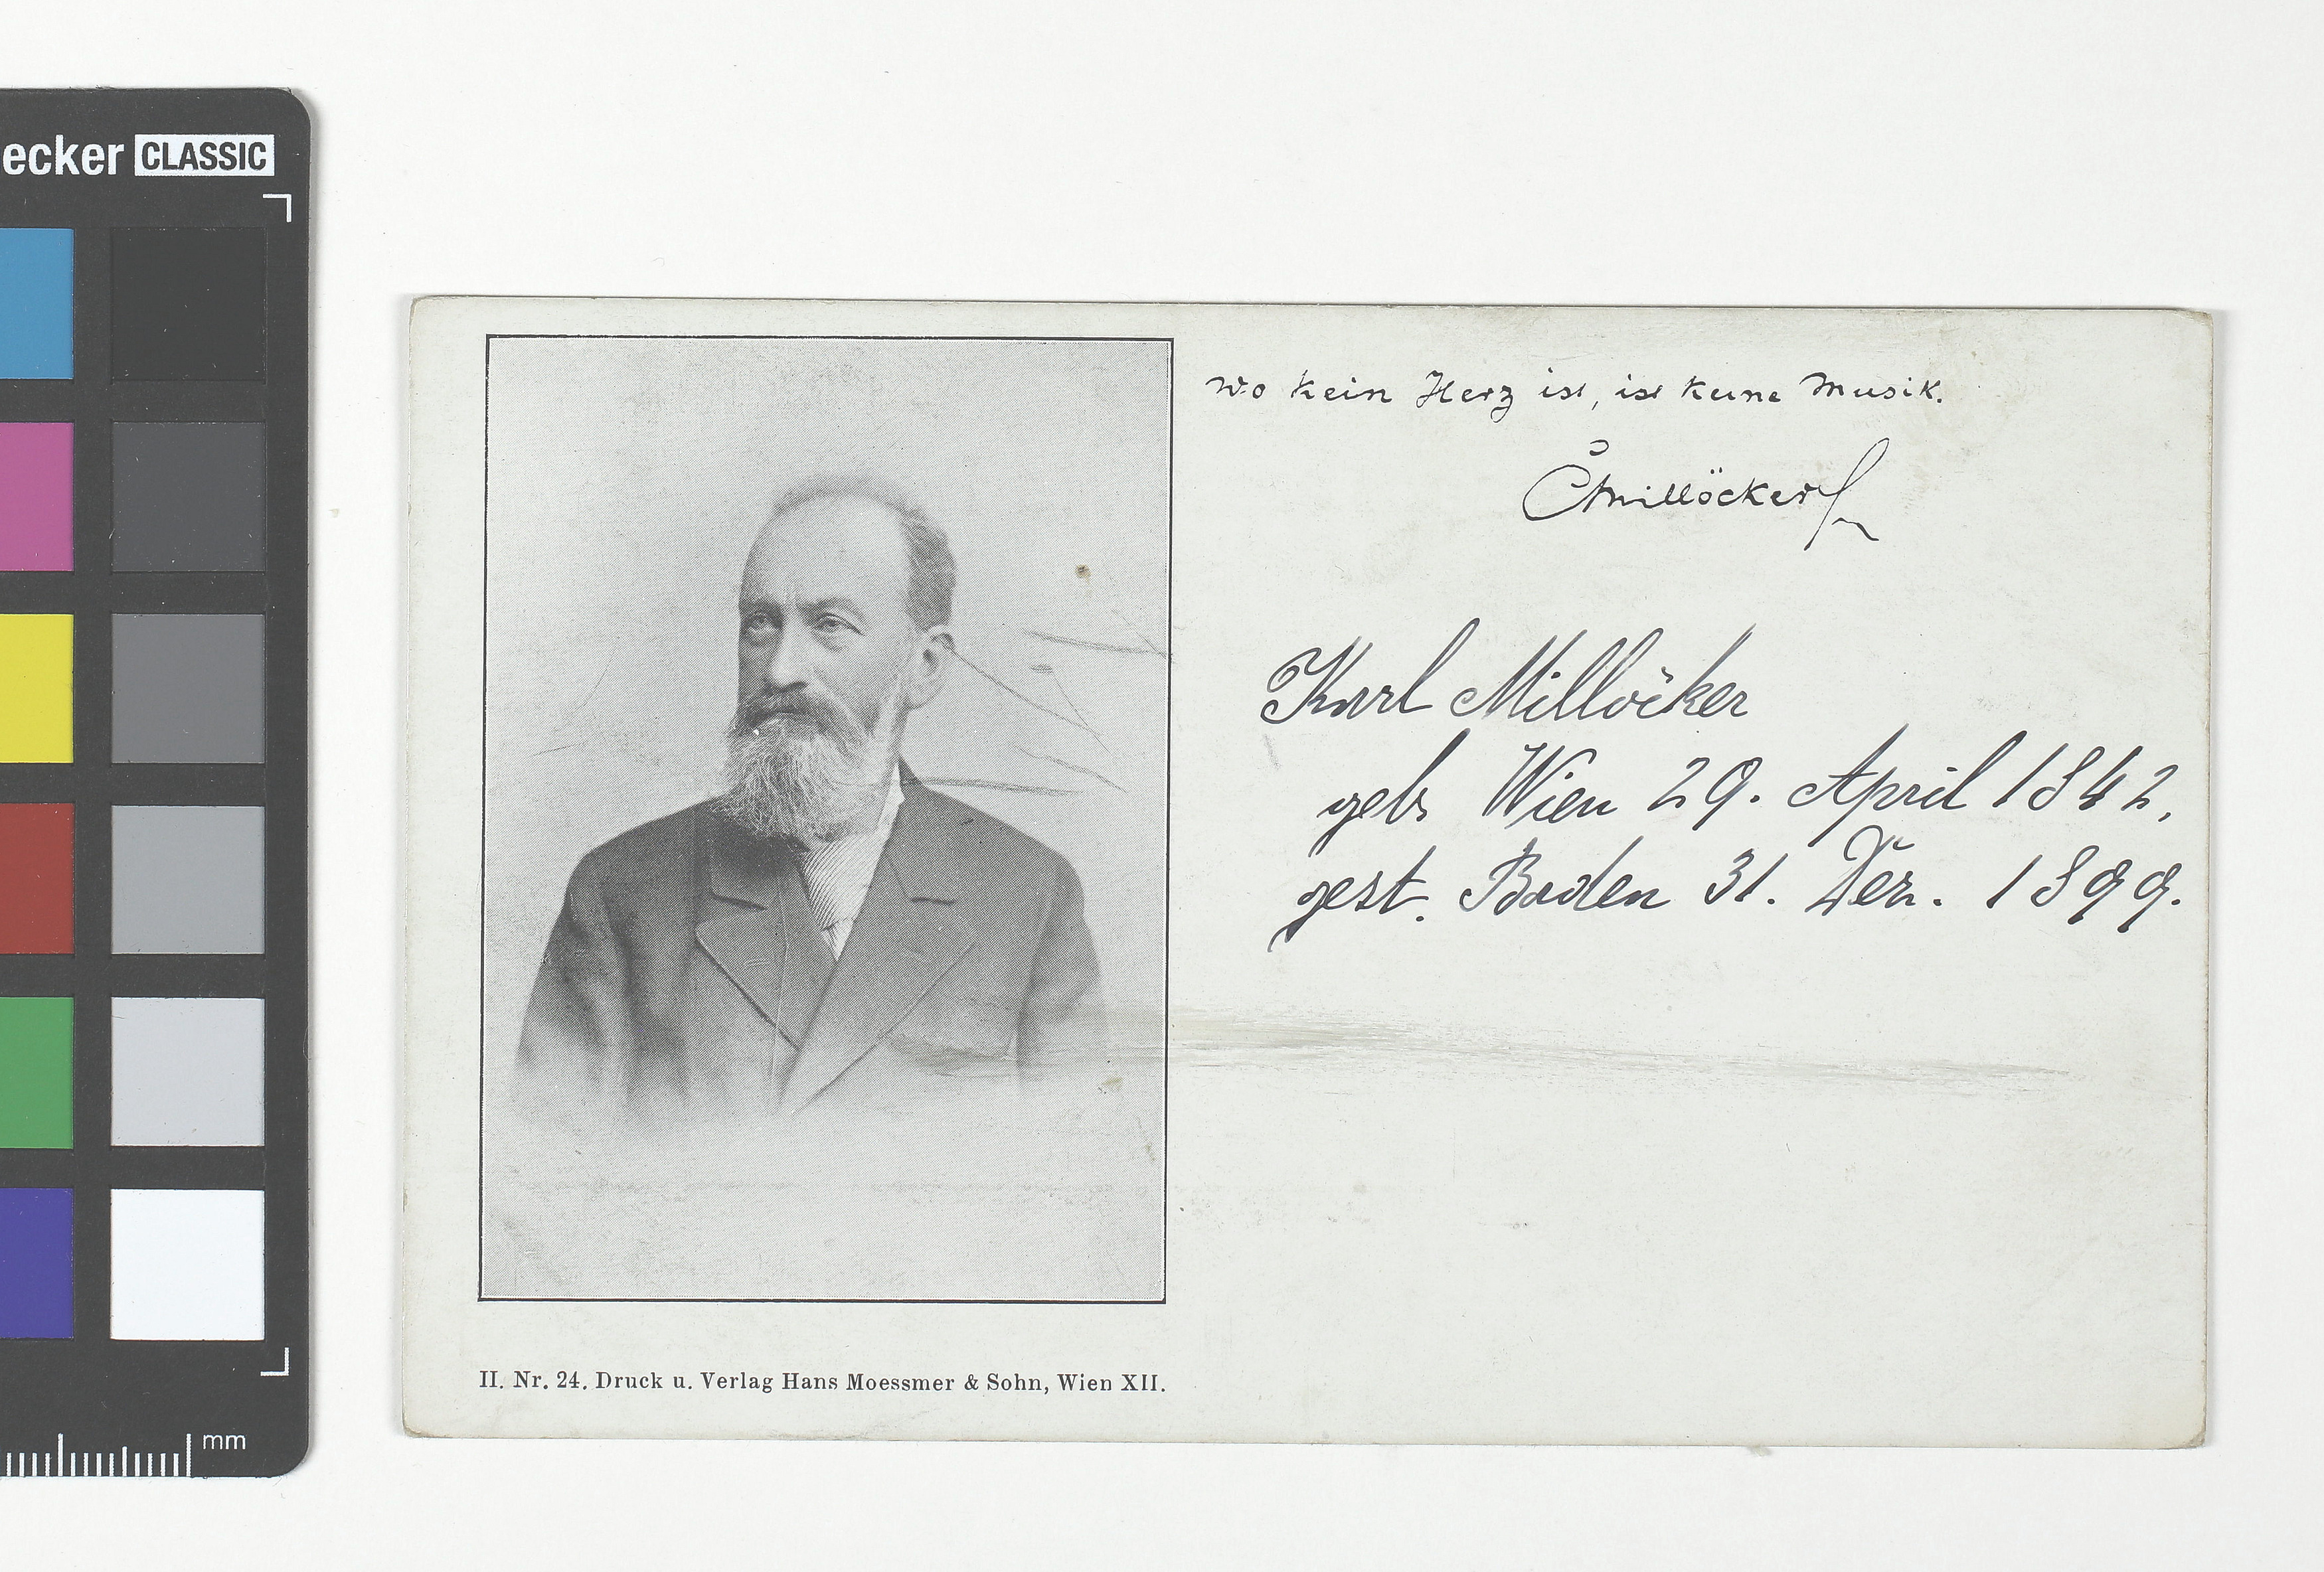 ecker CLASSIC
wo kein Herz ist, ist keine Musik.
CMillöcker
Karl Millöcker
geb. Wien 29. April 1842,
gest. Baden 31. Dez. 1899.
II. Nr. 24. Druck u. Verlag Hans Moessmer & Sohn, Wien XII.
mm